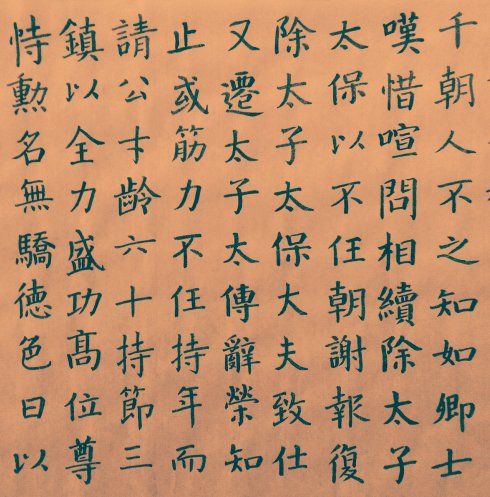 千朝人不之知如卿士
嘆惜喧問相續除太子
太保以不任朝謝報復
除太子太保大夫致仕
又遷太子太傅辭榮知
止或筋力不任持年而
請公才齡六十持節三
鎮以全力盛功髙位尊
恃勲名無驕德色日以